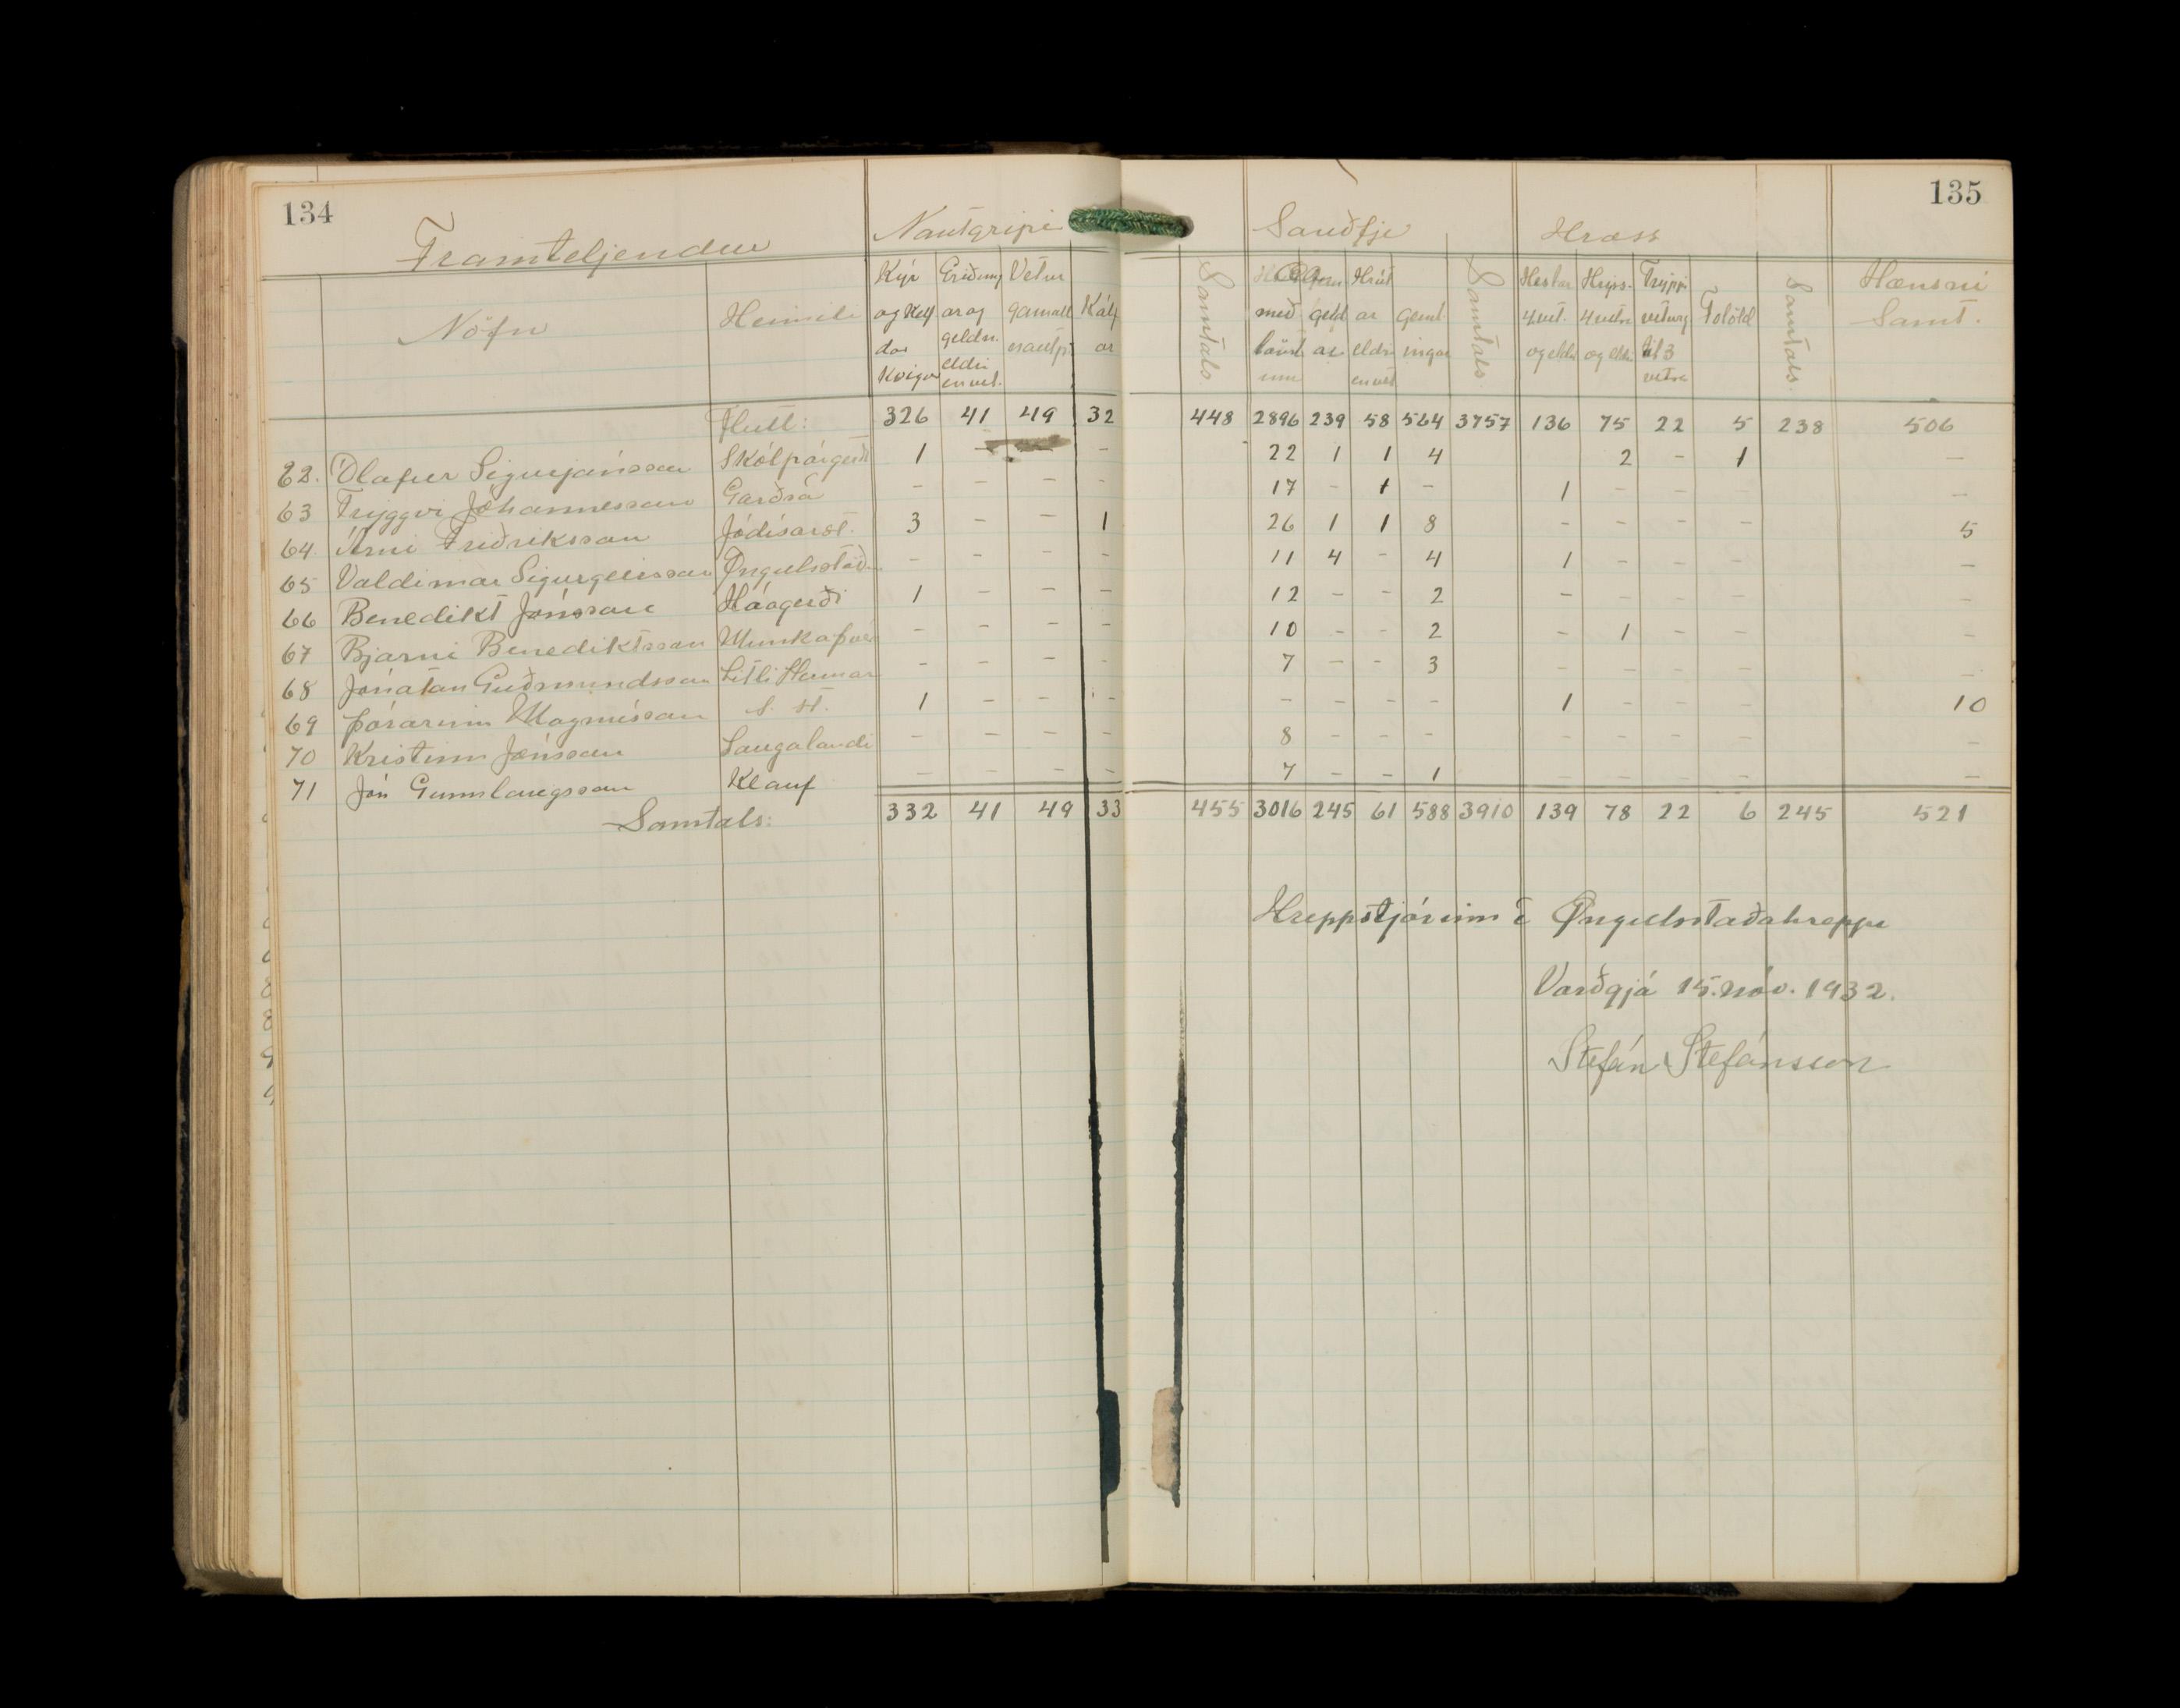 134
135
Framteljendur Nautgripi Sauðfje Hross
Nöfn Heimili Kýr og Kelfdar Kvígur Griðungar og geldn. eldri en vet. Vetur gamall nautp. Kálfar Samtals með lömbum geld ar Hrútar eldri en vet Geml ingar Samtals Hestar 4 vet. og eldri Hryss. 4 vetra og eldri Tryppi veturg til 3 vetra Folöld Samtals Hænsni Samt.
Flutt: 326 41 49 32 448 2896 239 58 564 3757 136 75 22 5 238 506
62. Ólafur Sigurjónsson Skólpágerði 1 - - - 22 1 1 4 2 - 1 -
63 Tryggvi Jóhannesson Garðsá - - - - 17 - 1 - 1 - - - -
64. Árni Friðriksson Jódísarst. 3 - - 1 26 1 1 8 - - - - 5
65 Valdimar Sigurgeirsson Öngulsstöð - - - - 11 4 - 4 1 - - - -
66 Benedikt Jónsson Háagerði 1 - - - 12 - - 2 - - - - -
67 Bjarni Benediktsson Munkaþverá - - - - 10 - - 2 - 1 - - -
68 Jónatan Guðmundsson Litli Hamar - - - - 7 - - 3 - - - - -
69 Þórarinn Magnússon s. st. 1 - - - - - - - 1 - - - 10
70 Kristinn Jónsson Laugalandi - - - - 8 - - - - - - - -
71 Jón Gunnlaugsson Klauf - - - - 7 - - 1 - - - - -
Samtals: 332 41 49 33 455 3016 245 61 588 3910 139 78 22 6 245 521
Hreppstjórinn í Öngulsstaðahreppi
Varðgjá 15. nóv. 1932.
Stefán Stefánsson